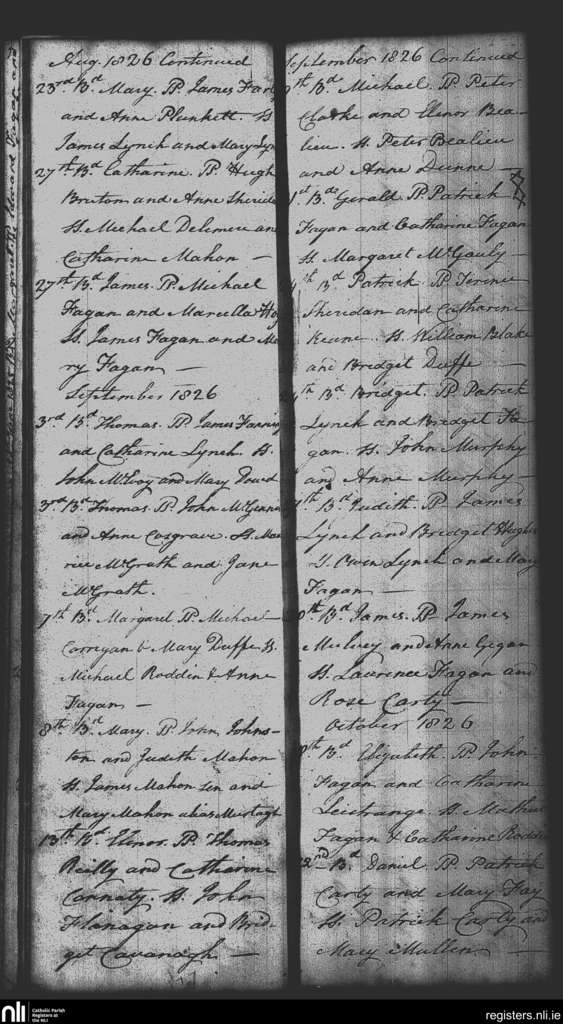 Aug. 1826 Continued
23rd Bd Mary. PP. James
and Anne Plunkett. SS.
James Lynch and Mary
27th Bd Catharine. PP. Hugh
Bruton and Anne
SS. Michael Delemere an
Catharine Mahon —
27th Bd James. PP. Michael
Fagan and Marcella
SS. James Fagan and Ma
ry Fagan —
September 1826
3rd Bd Thomas. PP. James
and Catharine Lynch. SS.
John McEvoy and Mary
3rd Bd Thomas. PP. John
and Anne Cosgrave. SS. Mau
rice McGrath and Jane
McGrath.
7th Bd Margaret PP. Michael
Corrigan & Mary Duffe SS.
Michael Roddin & Anne
Fagan —
8th Bd Mary. PP. John Johns-
ton and Judith Mahon
SS. James Mahon sen and
Mary Mahon alias Murtagh
13th Bd Elenor. PP. Thomas
Reilly and Catharine
Connaty. SS. John
Flanagan and Brid-
get Cavanagh —
September 1826 Continued
th Bd Michael. PP. Peter
Clarke and Elenor Bea-
lieu. SS. Peter Bealieu
and Anne Dunne —
st Bd Gerald. PP. Patrick
Fagan and Catharine Fagan
SS. Margaret McGauly —
th Bd Patrick. PP. Terence
Sheridan and Catharine
Keane. SS. William Blake
and Bridget Duffe —
th Bd Bridget. PP. Patrick
Lynch and Bridget Fa
gan. SS. John Murphy
and Anne Murphy —
th Bd Judith. PP. James
Lynch and Bridget Hughes
SS. Owen Lynch and Mary
Fagan —
th Bd James. PP. James
Mulvey and Anne Gegan
SS. Laurence Fagan and
Rose Carty —
October 1826
th Bd Elizabeth. PP. John
Fagan and Catharine
Leistrange. SS. Mathew
Fagan & Catharine
22nd Bd Daniel. PP. Patrick
Carty and Mary Fay
SS. Patrick Carty and
Mary Mullen —
nli
Catholic Parish
Registers at
the NLI
registers.nli.ie